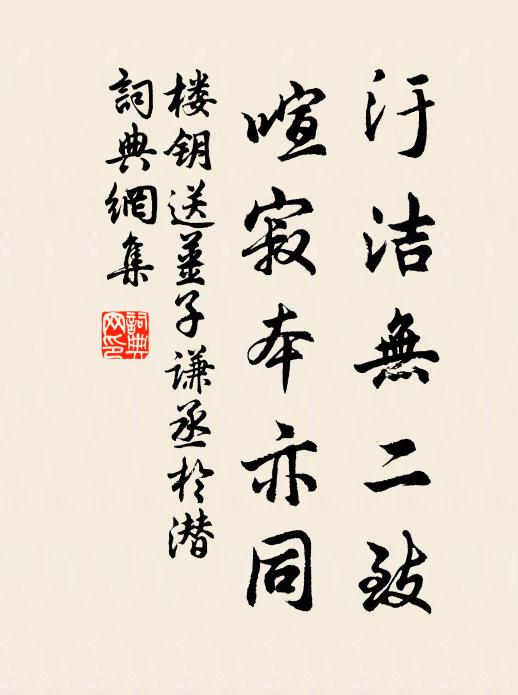 汙洁無二致
喧寂本亦同
楼钥送薑子谦丞於潜
詞典網集
詞典网印